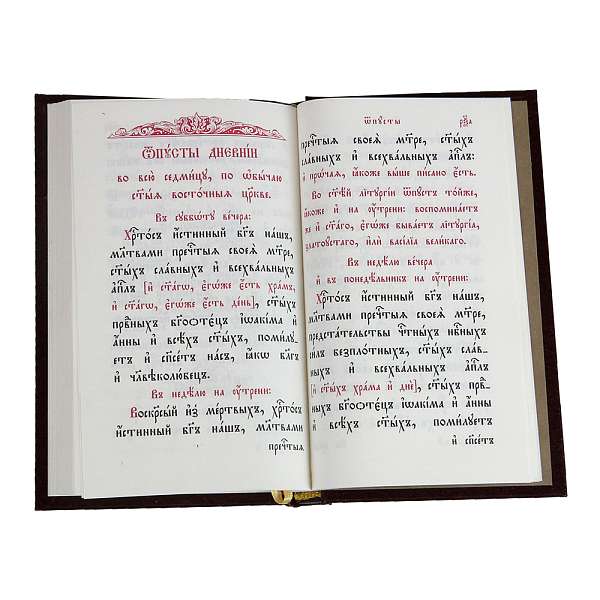 Ѿпꙋ́сты дневні́и
во всю̀ седми́цꙋ, по ѻ҆бы́чаю
ст҃ы́ѧ восто́чныѧ цр҃кве.
Въ сꙋббѡ́тꙋ ве́чера:
Хрⷭ҇то́съ и҆́стинный бг҃ъ на́шъ,
мл҃твами пречⷭ҇тыѧ своеѧ̀ мт҃ре,
ст҃ы́хъ сла́вныхъ и҆ всехва́льныхъ
а҆пⷭ҇лъ [и҆ ст҃а́гѡ, є҆гѡ́же є҆́сть хра́мъ,
и҆ ст҃а́гѡ, є҆гѡ́же є҆́сть де́нь], ст҃ы́хъ
првⷣныхъ бг҃оѻтє́цъ і҆ѡакі́ма и҆
а҆́нны и҆ всѣ́хъ ст҃ы́хъ, поми́лꙋ-
етъ и҆ сп҃се́тъ на́съ, ꙗ҆́кѡ бл҃гъ
и҆ чл҃вѣколю́бецъ.
Въ недѣ́лю на ᲂу҆́трени:
Воскр҃сы́й и҆з̾ ме́ртвыхъ, хрⷭ҇то́съ
и҆́стинный бг҃ъ на́шъ, мл҃твами
пречⷭ҇тыѧ
ѿпꙋсты
пречⷭ҇тыѧ своеѧ̀ мт҃ре, ст҃ы́хъ
сла́вныхъ и҆ всехва́льныхъ а҆пⷭ҇лъ:
и҆ прѡ́чаѧ, ꙗ҆́коже вы́ше пи́сано є҆́сть.
Во ст҃ѣ́й літꙋргі́и ѿпꙋ́стъ то́йже,
ꙗ҆́коже и҆ на ᲂу҆́трени: воспомина́етъ
же и҆ ст҃а́го, є҆гѡ́же быва́етъ літꙋргі́а,
златоꙋ́стаго, и҆лѝ васі́лїа вели́каго.
Въ недѣ́лю ве́чера
и҆ въ понедѣ́льникъ на ᲂу҆́трени:
Хрⷭ҇то́съ и҆́стинный бг҃ъ на́шъ,
мл҃твами пречⷭ҇тыѧ своеѧ̀ мт҃ре,
предста́тельствы чтⷭ҇ны́хъ нбⷭ҇ныхъ
си́лъ безпло́тныхъ, ст҃ы́хъ сла́в-
ныхъ и҆ всехва́льныхъ а҆пⷭ҇лъ
[и҆ ст҃ы́хъ хра́ма и҆ днѐ], ст҃ы́хъ првⷣ-
ныхъ бг҃оѻтє́цъ і҆ѡакі́ма и҆ а҆́нны
и҆ всѣ́хъ ст҃ы́хъ, поми́лꙋетъ
и҆ сп҃се́тъ